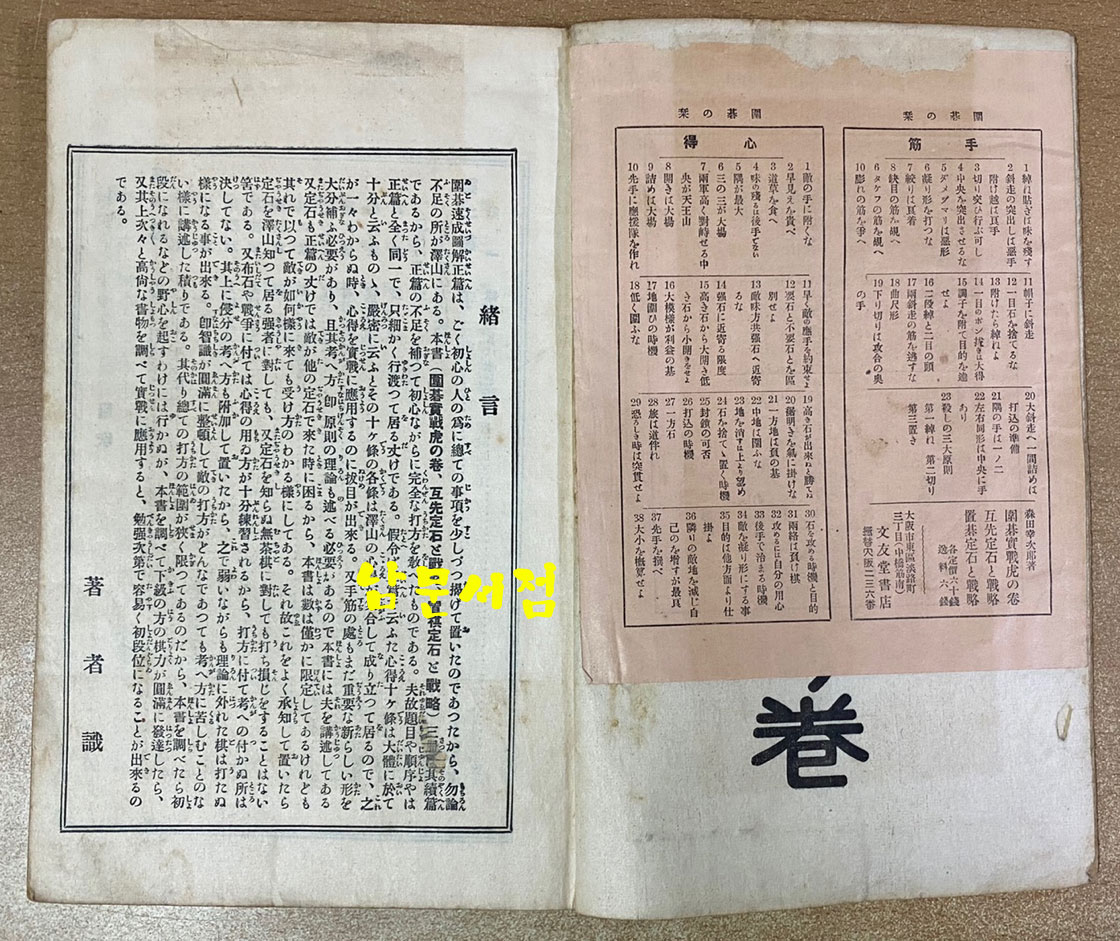 圍碁の栞
手筋
1 綽れ貼ぎは味を殘す
2 斜走の突出しは惡手
附け越は眞手
3 切り突ひ行ぶ可し
4 中央を突出させるな
5 ダメヅマリは惡形
6 凝り形を打つな
7 絞りは眞着
8 缺目の筋を覘へ
9 タケフの筋を覘へ
10 膨れの筋を爭へ
11 帽に手に斜走
12 一目石を捨てるな
13 附けたら綽れよ
14 一目のポン拔きは大得
15 調子を附て目的を達
せよ
16 二段綽と二目の頭
17 兩斜走の筋を逃すな
18 曲尺形
19 下り切りは攻合の奥
の手
20 大斜走へ一間詰めは
打込の準備
21 隅の手は一ノ二
22 左右同形は中央に手
あり
23 殺しの三大原則
第一綽れ 第二切り
第三置き
森田幸次郎著
圍碁實戰虎の卷
互先定石と戰略
置碁定石と戰略
各定價六十錢
送料六錢
大阪市東區淡路町
三丁目(中橋筋南)
文友堂書店
振替大阪二三六番
圍碁の栞
心得
1 敵の手に附くな
2 早見えを貴べ
3 道草を食へ
4 味の殘るは後手でない
5 隅が最大
6 三の三が大場
7 兩軍高く對峙せる中
央が天王山
8 開きは大場
9 詰めは大場
10 先手に應援隊を作れ
11 早く敵の應手を約束せよ
12 要石と不要石とを區
別せよ
13 敵味方共强石へ近寄
るな
14 强石に近寄る限度
15 高き石から大開き低
き石から小開きをせよ
16 大模樣が利益の基
17 地圍ひの時機
18 低く圍ふな
19 高き石が出來ぬと勝てぬ
20 鋸明きを氣に掛けな
21 一方地は負の基
22 中地は圍ふな
23 地を消すは上より認め
24 石を捨てゝ置く時機
25 封鎖の可否
26 打込の時機
27 一方石
28 旅は道伴れ
29 恐ろしき時は突貫せよ
30 石を攻める時機と目的
31 兩絡は負け棋
32 攻めるには自分の用心
33 後手で治まる時機
34 敵を凝り形にする事
35 目的は他方面より仕
掛よ
36 隣りの敵地を減じ自
己のを增すが最良
37 先手を撰べ
38 大小を概算せよ
卷
緒言
圍碁速成圖解正篇は、ごく初心の人の爲に總ての事項を少しづつ揚げて置いたのであつたから、勿論
不足の所が澤山にある。本書(圍碁實戰虎の卷、互先定石と戰略、置碁定石と戰略)三は其續篇
であるから、正篇の不足を補つて初心ながらに完全な打方を敎へたものである。夫故題目や順序やは
正篇と全く同一で、只細かく行渡つて居る丈けである。假令ば云ふた心得十ヶ條は大體に於て
十分と云ふものゝ、嚴密に云ふとその十ヶ條の各條は澤山の合して成り立つて居るので、之
が一々わからぬ時、心得を實戰へ應用するのに拔目が出來る。又手筋の處もまだ重要な新らしい形を
大分補ふ必要があり、且其考へ方卽原則の理論も述べる必要があるので本書には夫を講述してある
又定石も正篇の丈けでは敵が他の定石で來た時に困るから、本書は數は僅かに限定してあるけれども
其れで以つて敵が如何樣に來ても受け方のわかる樣にしてある。それ故これをよく承知して置いたら
定石を澤山知つて居る强者に對しても、又定石を知らぬ無茶棋に對しても打ち損じをすることはない
筈である。又布石や戰爭に付ては心得の用ゐ方が十分練習されるから、打方に付て考への付かぬ所は
決してない。其上に侵分の考へ方も附加して置いたから、之で弱いながらも理論に外れた棋は打たぬ
樣になる事が出來る。卽智識が圓滿に整頓して敵の打方がどんなであつても考へ方に苦しむことのな
い樣に講述した積りである。其代り總ての打方の範圍が狹く限つてあるのだから、本書を調べたら初
段になれるなどの野心を起すわけには行かぬが、本書を調べて下級の方の棋力が圓滿に發達したら、
又其上次々と高尙な書物を調べて實戰に應用すると、勉强次第で容易く初段位になることが出來るの
である。
著者識
남문서점